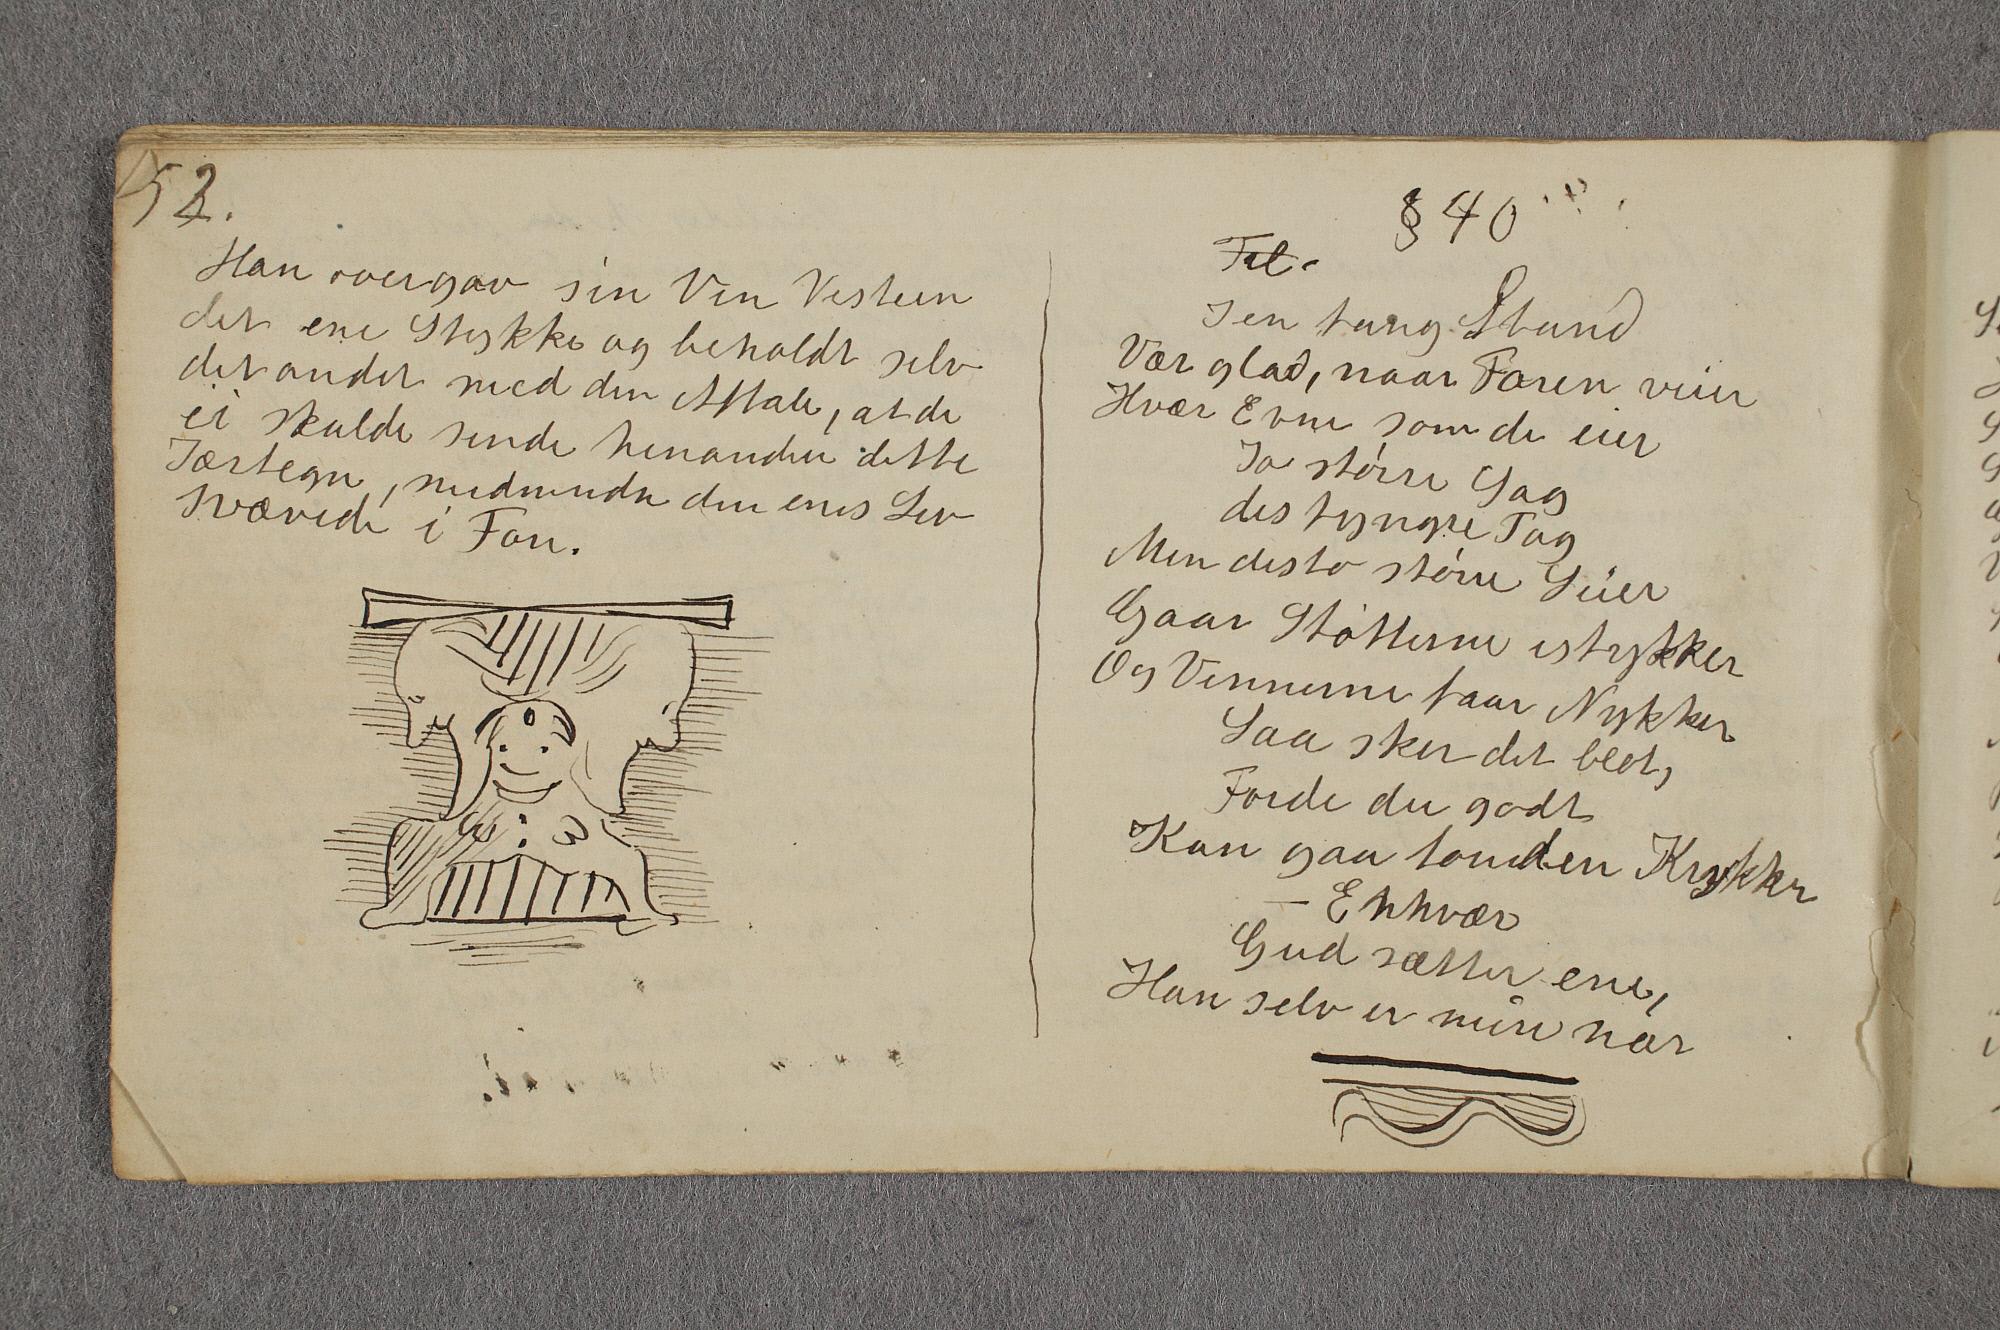 52.
Han overgav sin Ven Vestein
det ene Stykke og beholdt selv
det andet med den Aftale, at de
ei skulde sende hinanden dette
Jærtegn, medmindre den enes Liv
svævede i Fare.
§ 40
Til.
I en tung Stund
Vær glad, naar Faren veier
Hvær Evne som du eier
Jo større Sag
des tyngre Tag
Men desto større Seier
Gaar Støtterne istykker
Og Vennerne faar Nykker
Saa sker det blot,
Fordi du godt
Kan gaa foruden Krykker
— Enhvær
Gud sætter ene,
Han selv er mere nær